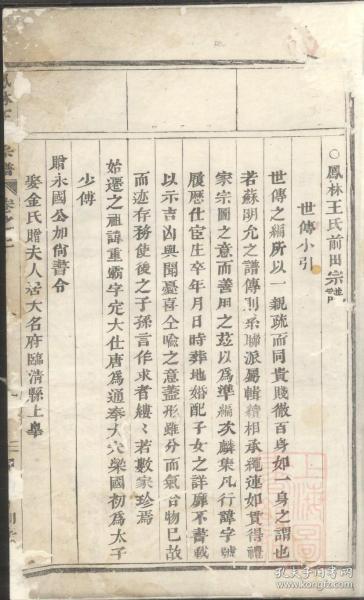 ○鳳林王氏前田宗譜
世傳小引
世傳之編所以一親疏而同貴賤微百身如一身之謂也
若蘇明允之譜傳則系聯派屬輯續相承繩連如貫得禮
家宗圖之意而善用之茲以為準編次麟集凡行諱字號
履歷仕宦生卒年月日時葬地婚配子女之詳靡不書載
以示吉凶與聞憂喜仝喻之意蓋形雖分而氣合物已故
而迹存務使後之子孫言作求者縷〻若數家珍焉
始遷之祖諱重霸字定大仕唐為通奉大夫梁國初為太子
少傅
贈永國公加尚書令
娶金氏贈夫人居大名府臨清縣上舉
鳳林王
宗譜
卷之
上海圖
孔夫子舊書網